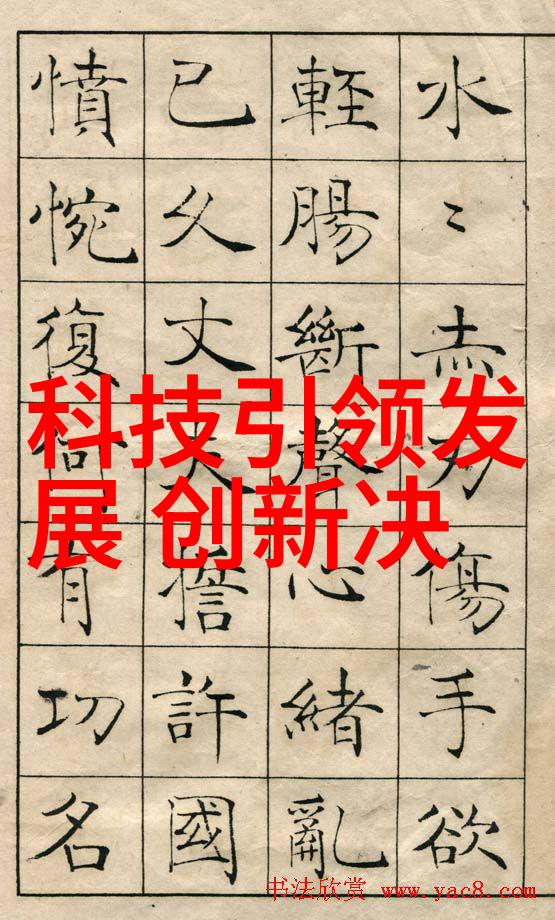 科技引领发
展 创新决
水〻赤刃傷手欲
輕腸斷聲心緒亂
已久丈夫誓許國
憤惋復何有功名
书法欣赏 www.yac8.com